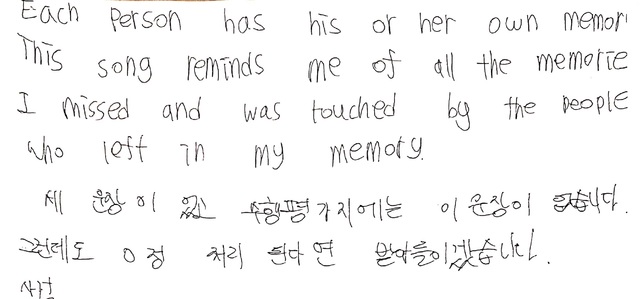 Each person has his or her own memor
This song reminds me of all the memorie
I missed and was touched by the people
who left in my memory.
세 문장이 있고 수행평가지에는 이 문장이 없습니다.
그런데도 0정 처리 된다면 받아들이겠습니다.